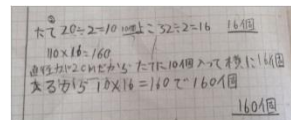 たて20÷2=10 よこ32÷2=16 16個
10×16=160
直径が2cmだから たてに10個入って横に16個
あるから 10×16=160で160個
160個